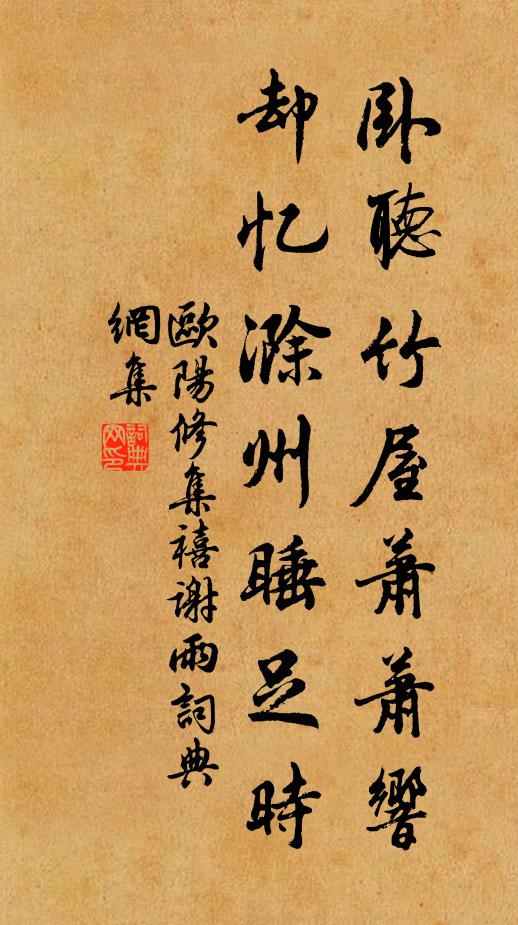 卧聽竹屋蕭蕭響
却忆滁州睡足時
歐陽修集禧謝雨詞典
網集
詞典網印